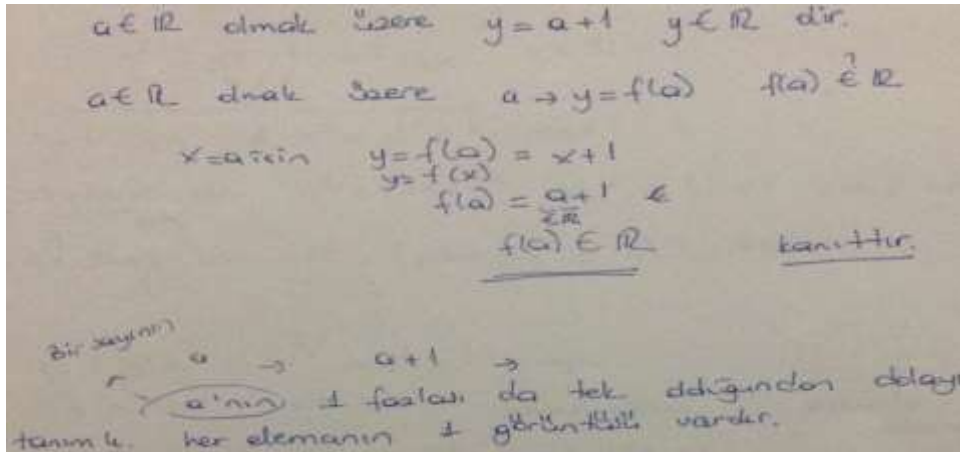 a ∈ ℝ olmak üzere y = a+1 y ∈ ℝ dir.
a ∈ ℝ olmak üzere a → y = f(a) f(a) ∈? ℝ
x = a için y = f(a) = x+1
y = f(x)
f(a) = a+1 ∈
∈ℝ
f(a) ∈ ℝ kanıttır.
Bir sayının
a → a+1 →
a'nın 1 fazlası da tek olduğundan dolayı
tanımlı. her elemanın 1 görüntüsü vardır.